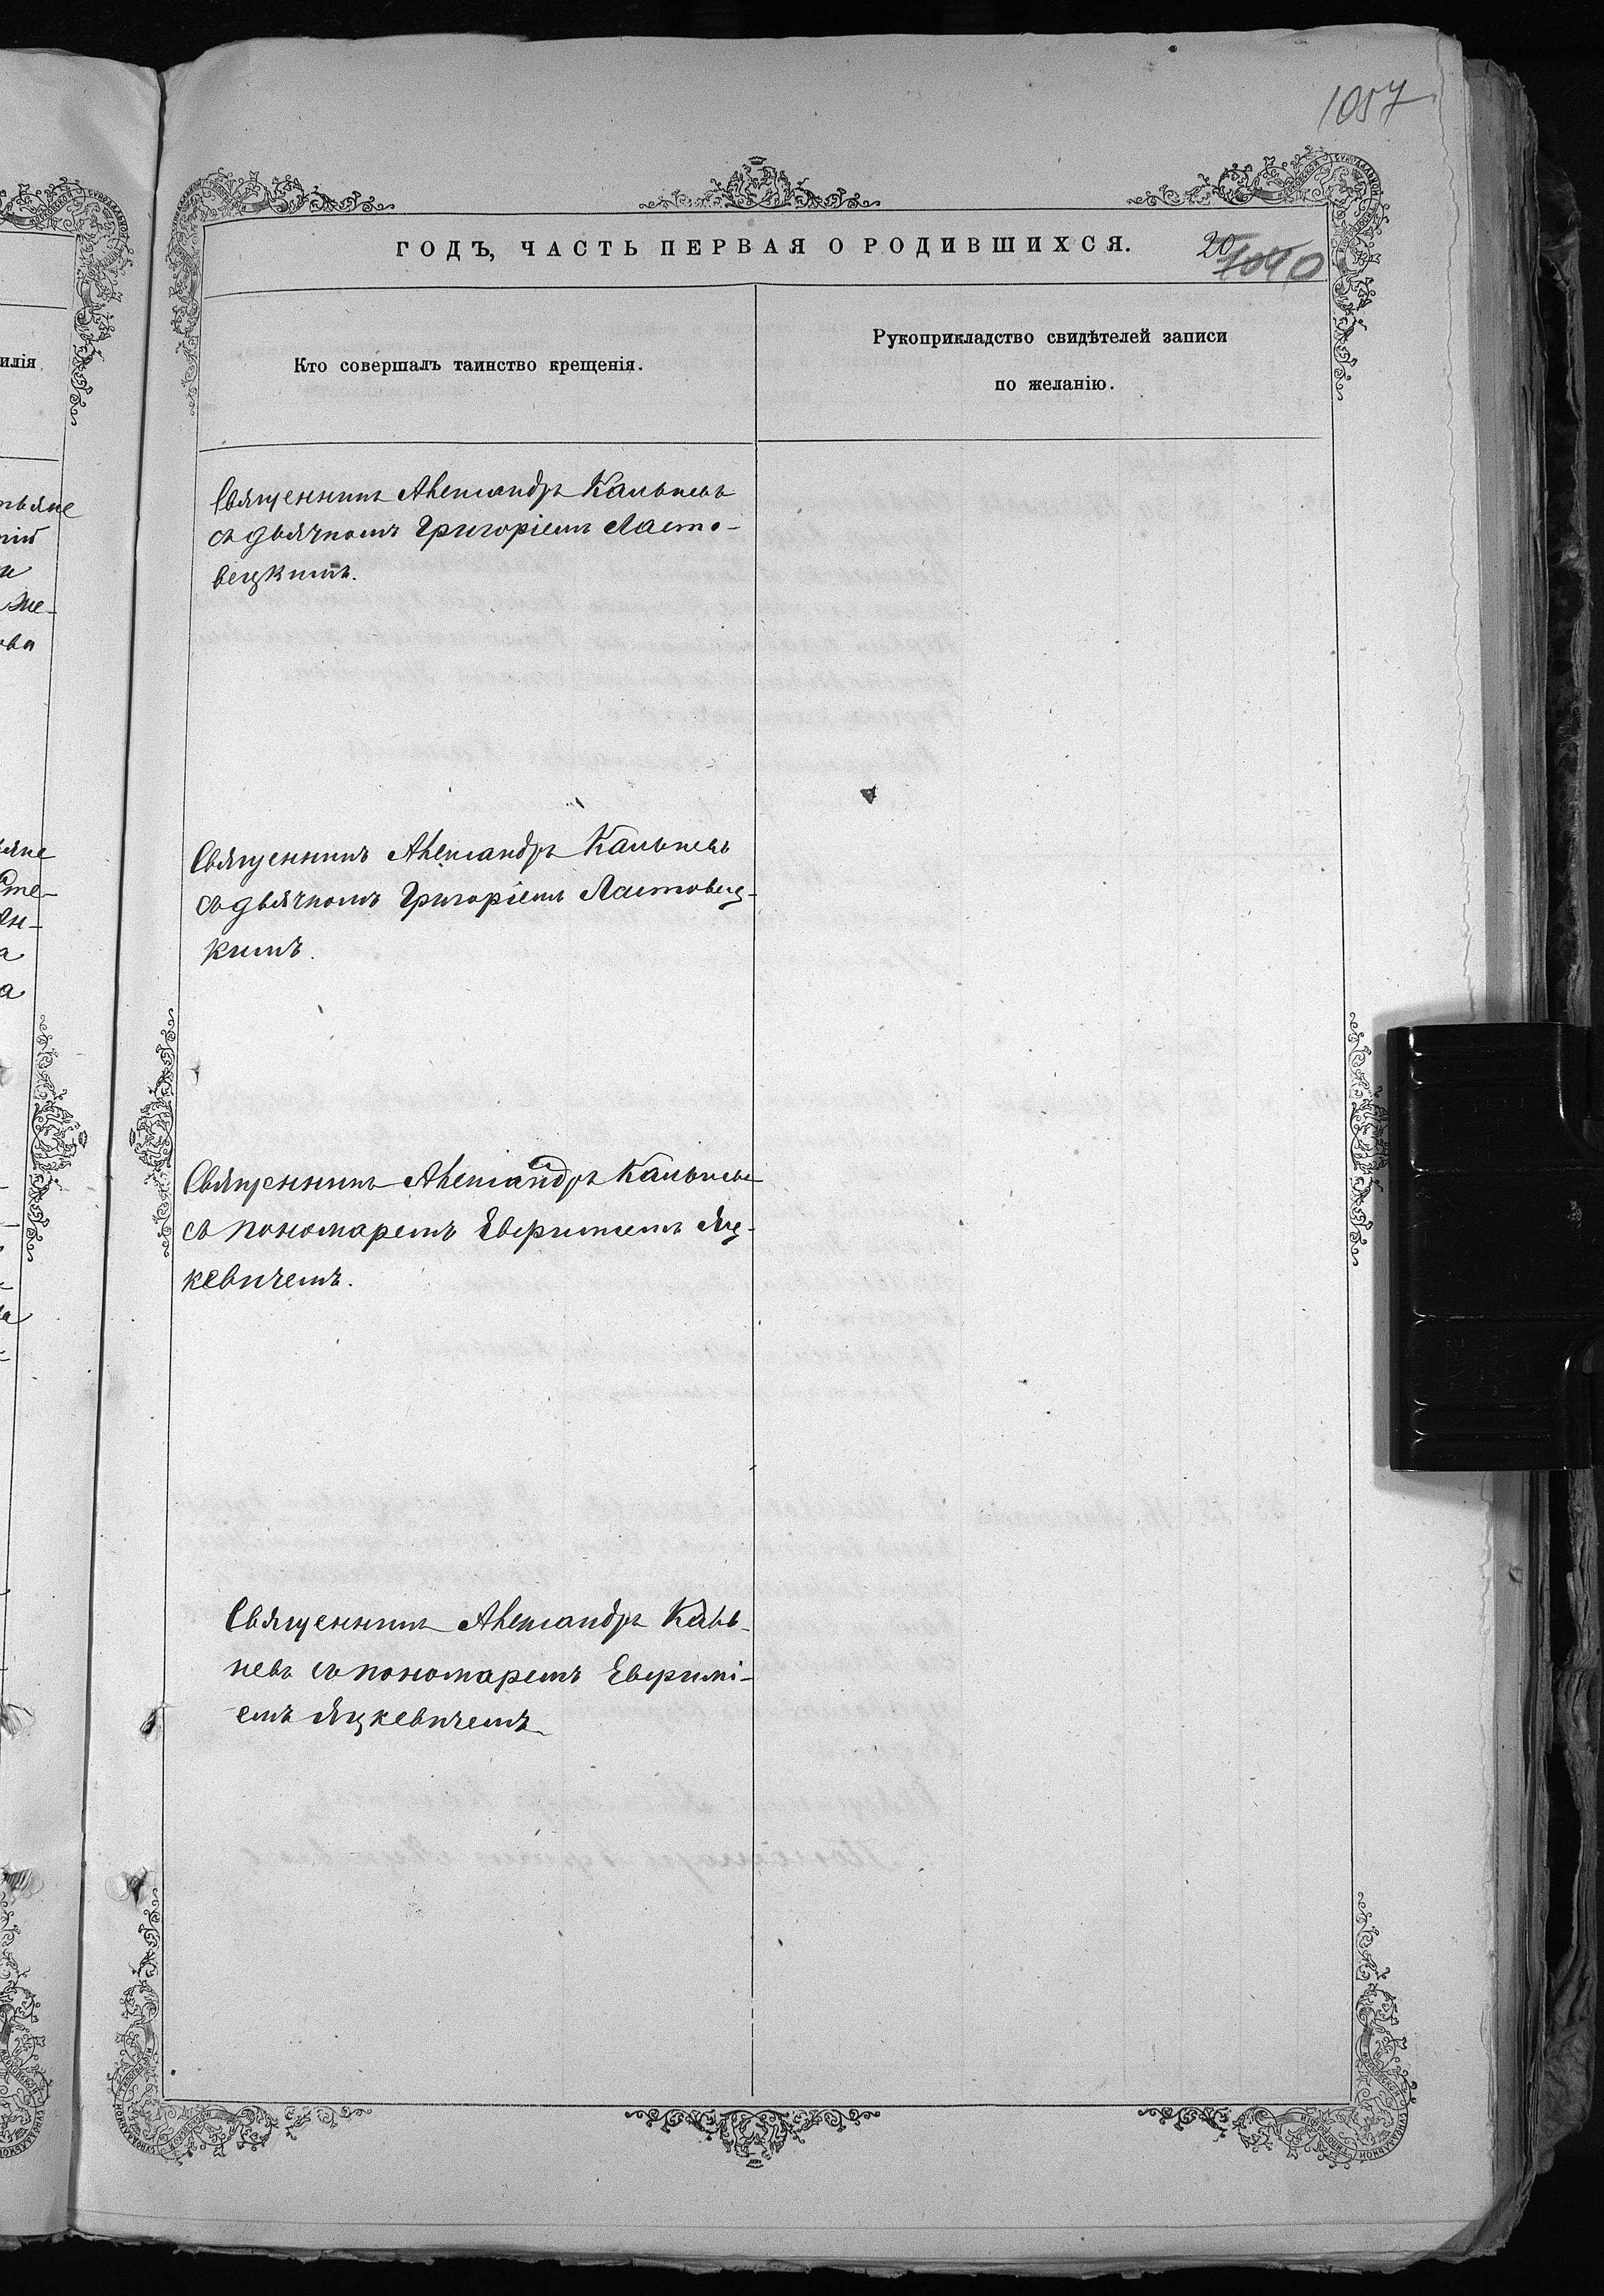 1057
ГОДЪ, ЧАСТЬ ПЕРВАЯ О РОДИВШИХСЯ.
20
Кто совершалъ таинство крещенія.
Рукоприкладство свидѣтелей записи
по желанію.
илія
Священникъ Александръ Кальневъ
съ дьячкомъ Григоріемъ Ласто-
вецкимъ.
Священникъ Александръ Кальневъ
съ дьячкомъ Григоріемъ Ластовец-
кимъ.
Священникъ Александръ Кальневъ
съ пономаремъ Евфиміемъ Яц-
кевичемъ.
Священникъ Александръ Каль-
невъ съ пономаремъ Евфимі-
емъ Яцкевичемъ